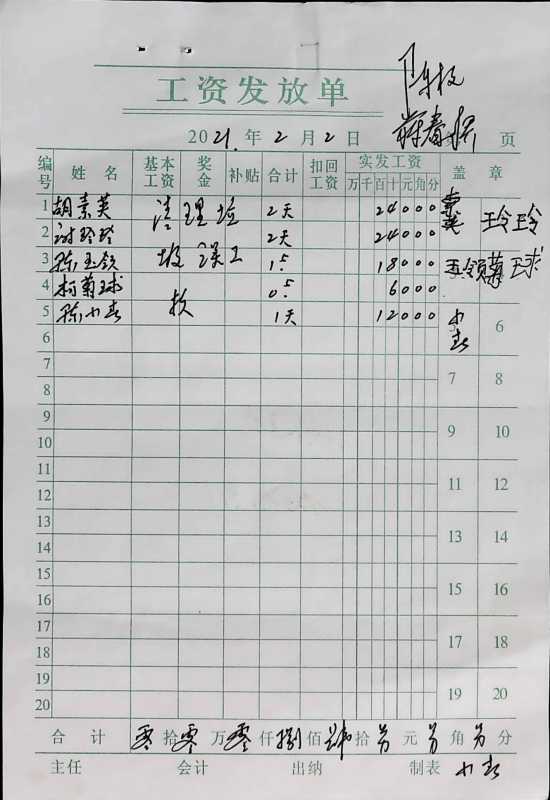 工资发放单
2021.年2月2日 页
编号 姓名 基本工资 奖金 补贴 合计 扣回工资 实发工资 万千百十元角分 盖章
1 胡素英 清理垃 2天 24000
2 谢玲玲 2天 24000 玲玲
3 陈玉领 圾误工 1.5 18000 玉领 球
4 柯菊球 0.5 6000
5 陈小春 款 1天 12000 小春 6
6
7 7 8
8
9 9 10
10
11 11 12
12
13 13 14
14
15 15 16
16
17 17 18
18
19 19 20
20
合计 零拾零万零仟捌佰肆拾另元另角另分
主任 会计 出纳 制表 小春